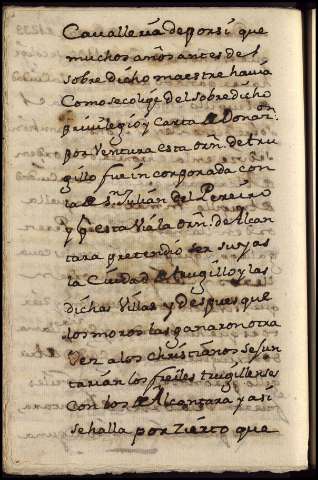 Cavalleria de porsi que
muchos años antes del
sobre dicho maestre havia
Como se colige del sobre dicho
privilegio y Carta de Donaⁿ.on
por Ventura esta orn. de tru
gillo fue in corporada con
la de Sn. Julian del Pereiro
y q̃ esta Via la orn. de Alcan
tara pretendio ser suyas
la Ciudad de trugillo y las
dichas Villas y despues que
los moros las ganaron otra
vez a los christianos se jun
tarian los freiles trugillenses
Con los de Alcantara y asi
se halla por zierto que